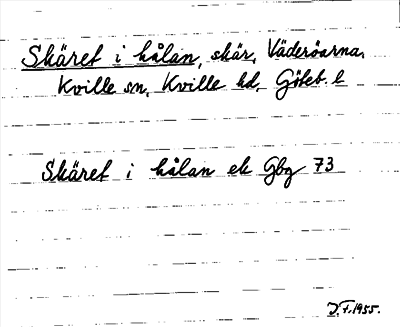 Skäret i hålan, skär, Väderöarna,
Kville sn, Kville hd, Göteb. l
Skäret i hålan ek Gbg 73
J.F. 1955.